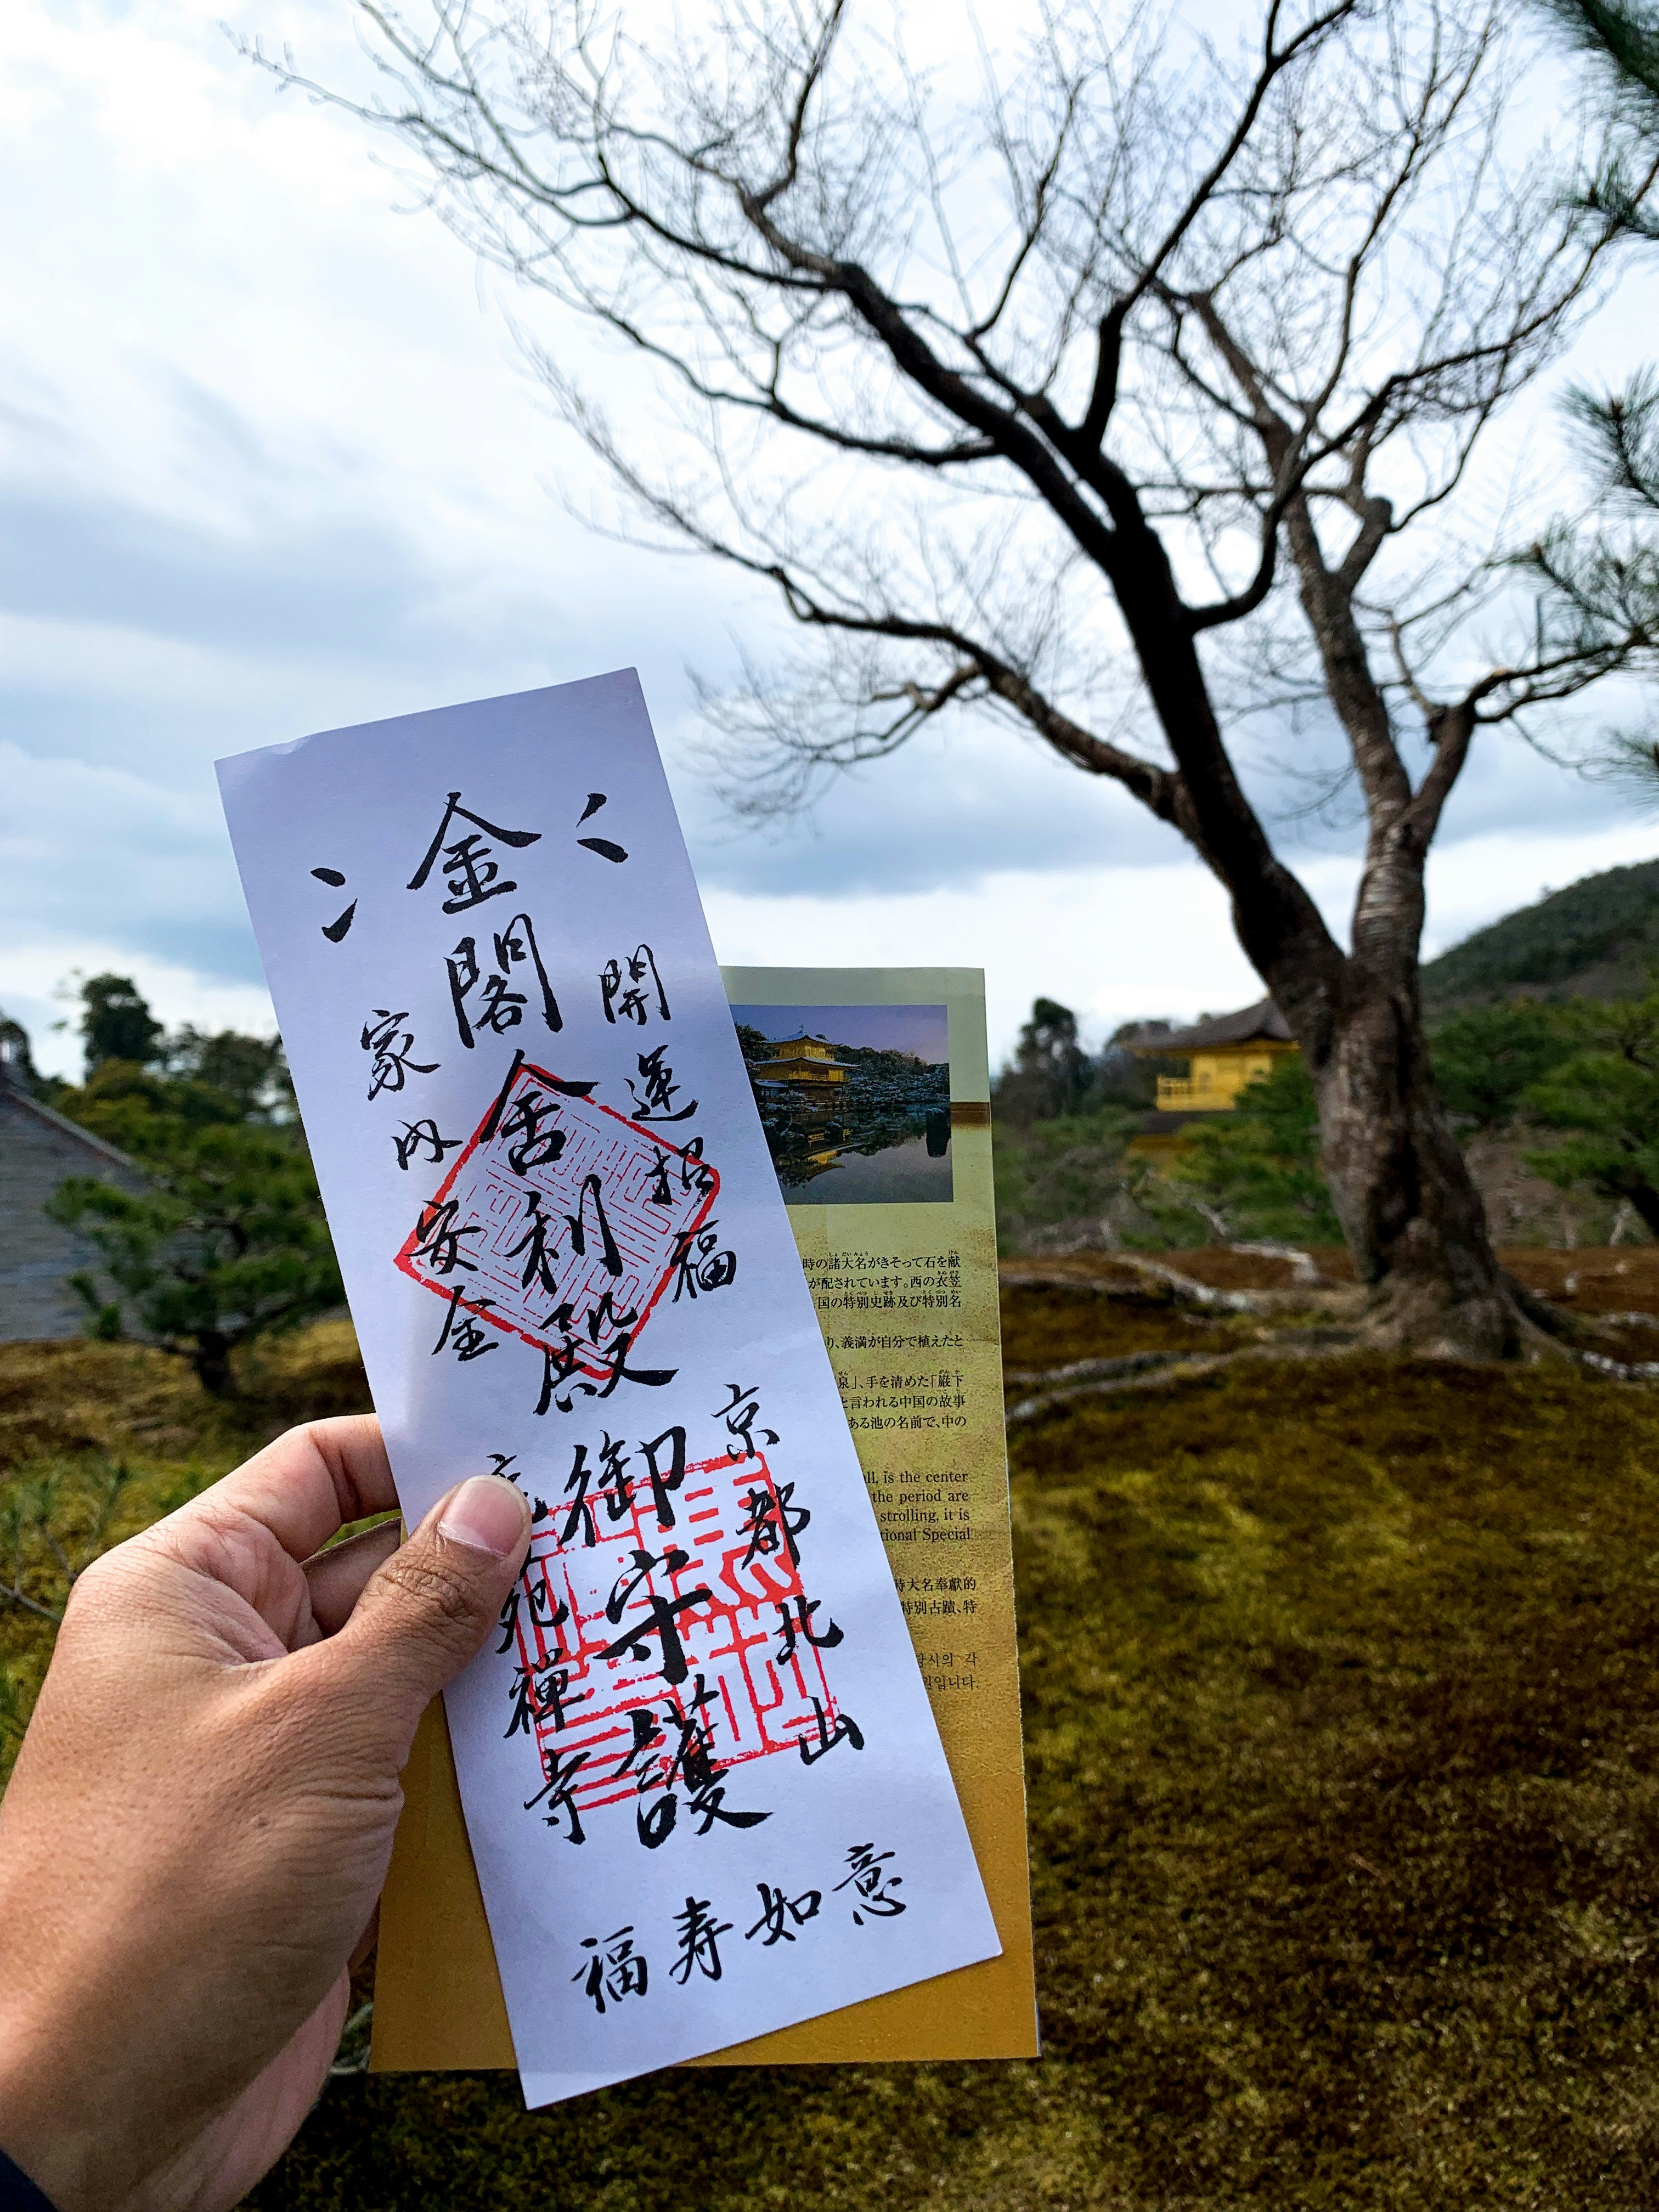 金閣舍利殿御守護
開運招福
家内安全
京都北山
苑禅寺
福寿如意
時の諸大名がきそって石を献
が配されています。西の衣笠
国の特別史跡及び特別名
り、義満が自分で植えたと
泉」、手を清めた「巌下
と言われる中国の故事
ある池の名前で、中の
ll, is the center
the period are
strolling, it is
tional Special
時大名奉獻的
特別古蹟、特
시의 각
입니다.